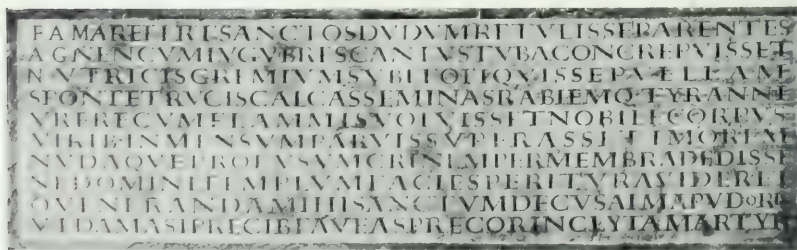 FAMAREFERTSANCTOSDVDVMRETVLISSEPARENTES
AGNENCVMLVGVBRESCANTVSTVBACONCREPVISSET
NVTRICISGREMIVMSVBITOLIQVISSEPVELLAM
SPONTETRVCISCALCASSEMINASRABIEMQ·TYRANNI
VRERECVMFLAMMISVOLVISSETNOBILECORPVS
VIRIBINMENSVMPARVISSVPERASSETIMOREM
NVDAQVEPROFVSVMCRINEMPERMEMBRADEDISSE
NEDOMINITEMPLVMFACIESPERITVRAVIDERET
OVENERANDAMIHISANCTVMDECVSALMAPVDORIS
VTDAMASIPRECIBFAVEASPRECORINCLYTAMARTYR